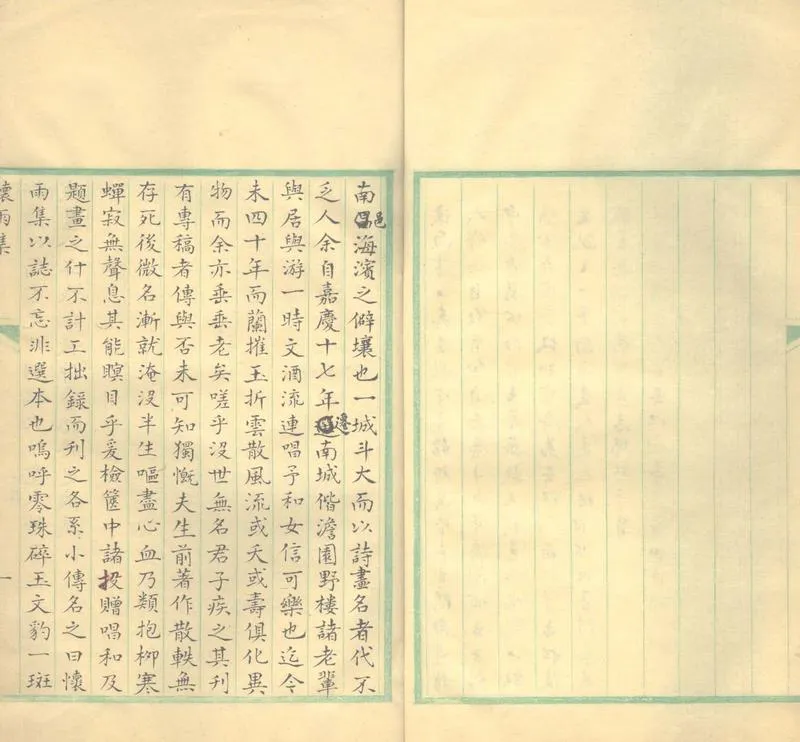 南邑海濱之僻壤也一城斗大而以詩畫名者代不
乏人余自嘉慶十七年遷南城偕澹園野樓諸老輩
與居與游一時文酒流連唱予和女信可樂也迄今
未四十年而蘭摧玉折雲散風流或夭或壽俱化異
物而余亦垂垂老矣嗟乎沒世無名君子疾之其刊
有專稿者傳與否未可知獨慨夫生前著作散軼無
存死後微名漸就淹沒半生嘔盡心血乃類抱柳寒
蟬寂無聲息其能瞑目乎爰檢篋中諸投贈唱和及
題畫之什不計工拙錄而刊之各系小傳名之曰懷
雨集以誌不忘非選本也嗚呼零珠碎玉文豹一斑
懷雨集 一